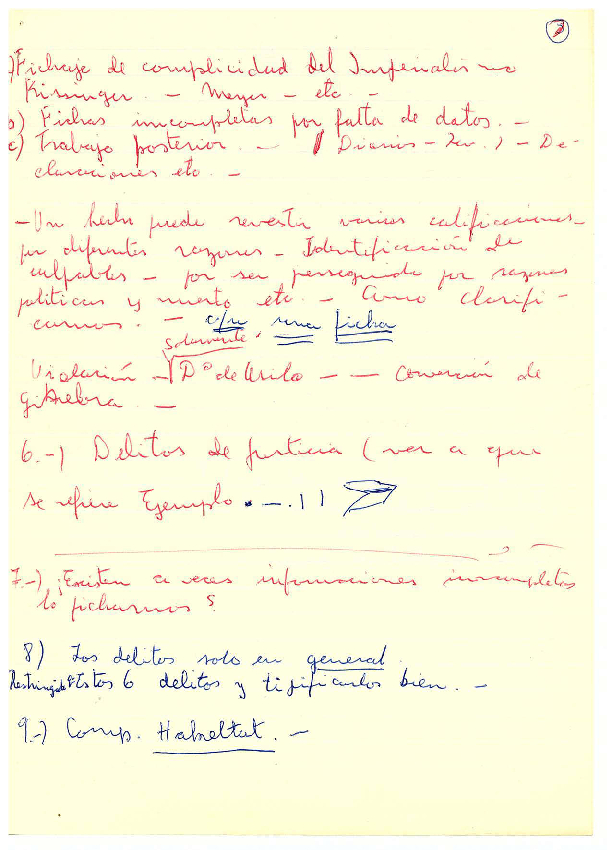 3
a) Fichaje de complicidad del Imperialismo
Kissinger. - Meyer - etc -
b) Fichas incompletas por falta de datos. -
c) Trabajo posterior. - Diarios - Rev. ) - De-
claraciones etc -
- Un hecho puede revestir varias calificaciones
por diferentes razones - Identificación de
culpables - por ser perseguido por razones
politicas y muerto etc. - Como clarifi-
camos. - c/u una ficha
solamente.
Violación - Dº de Asilo - - Convención de
Ginebra -
6.-) Delitos de justicia (ver a que
se refiere Ejemplo. - . ) )
7.-) Existen a veces informaciones incompletas
lo fichamos ?
8) Los delitos solo en general.
Estos 6 delitos y tipificarlos bien. -
9.-) Comp. -